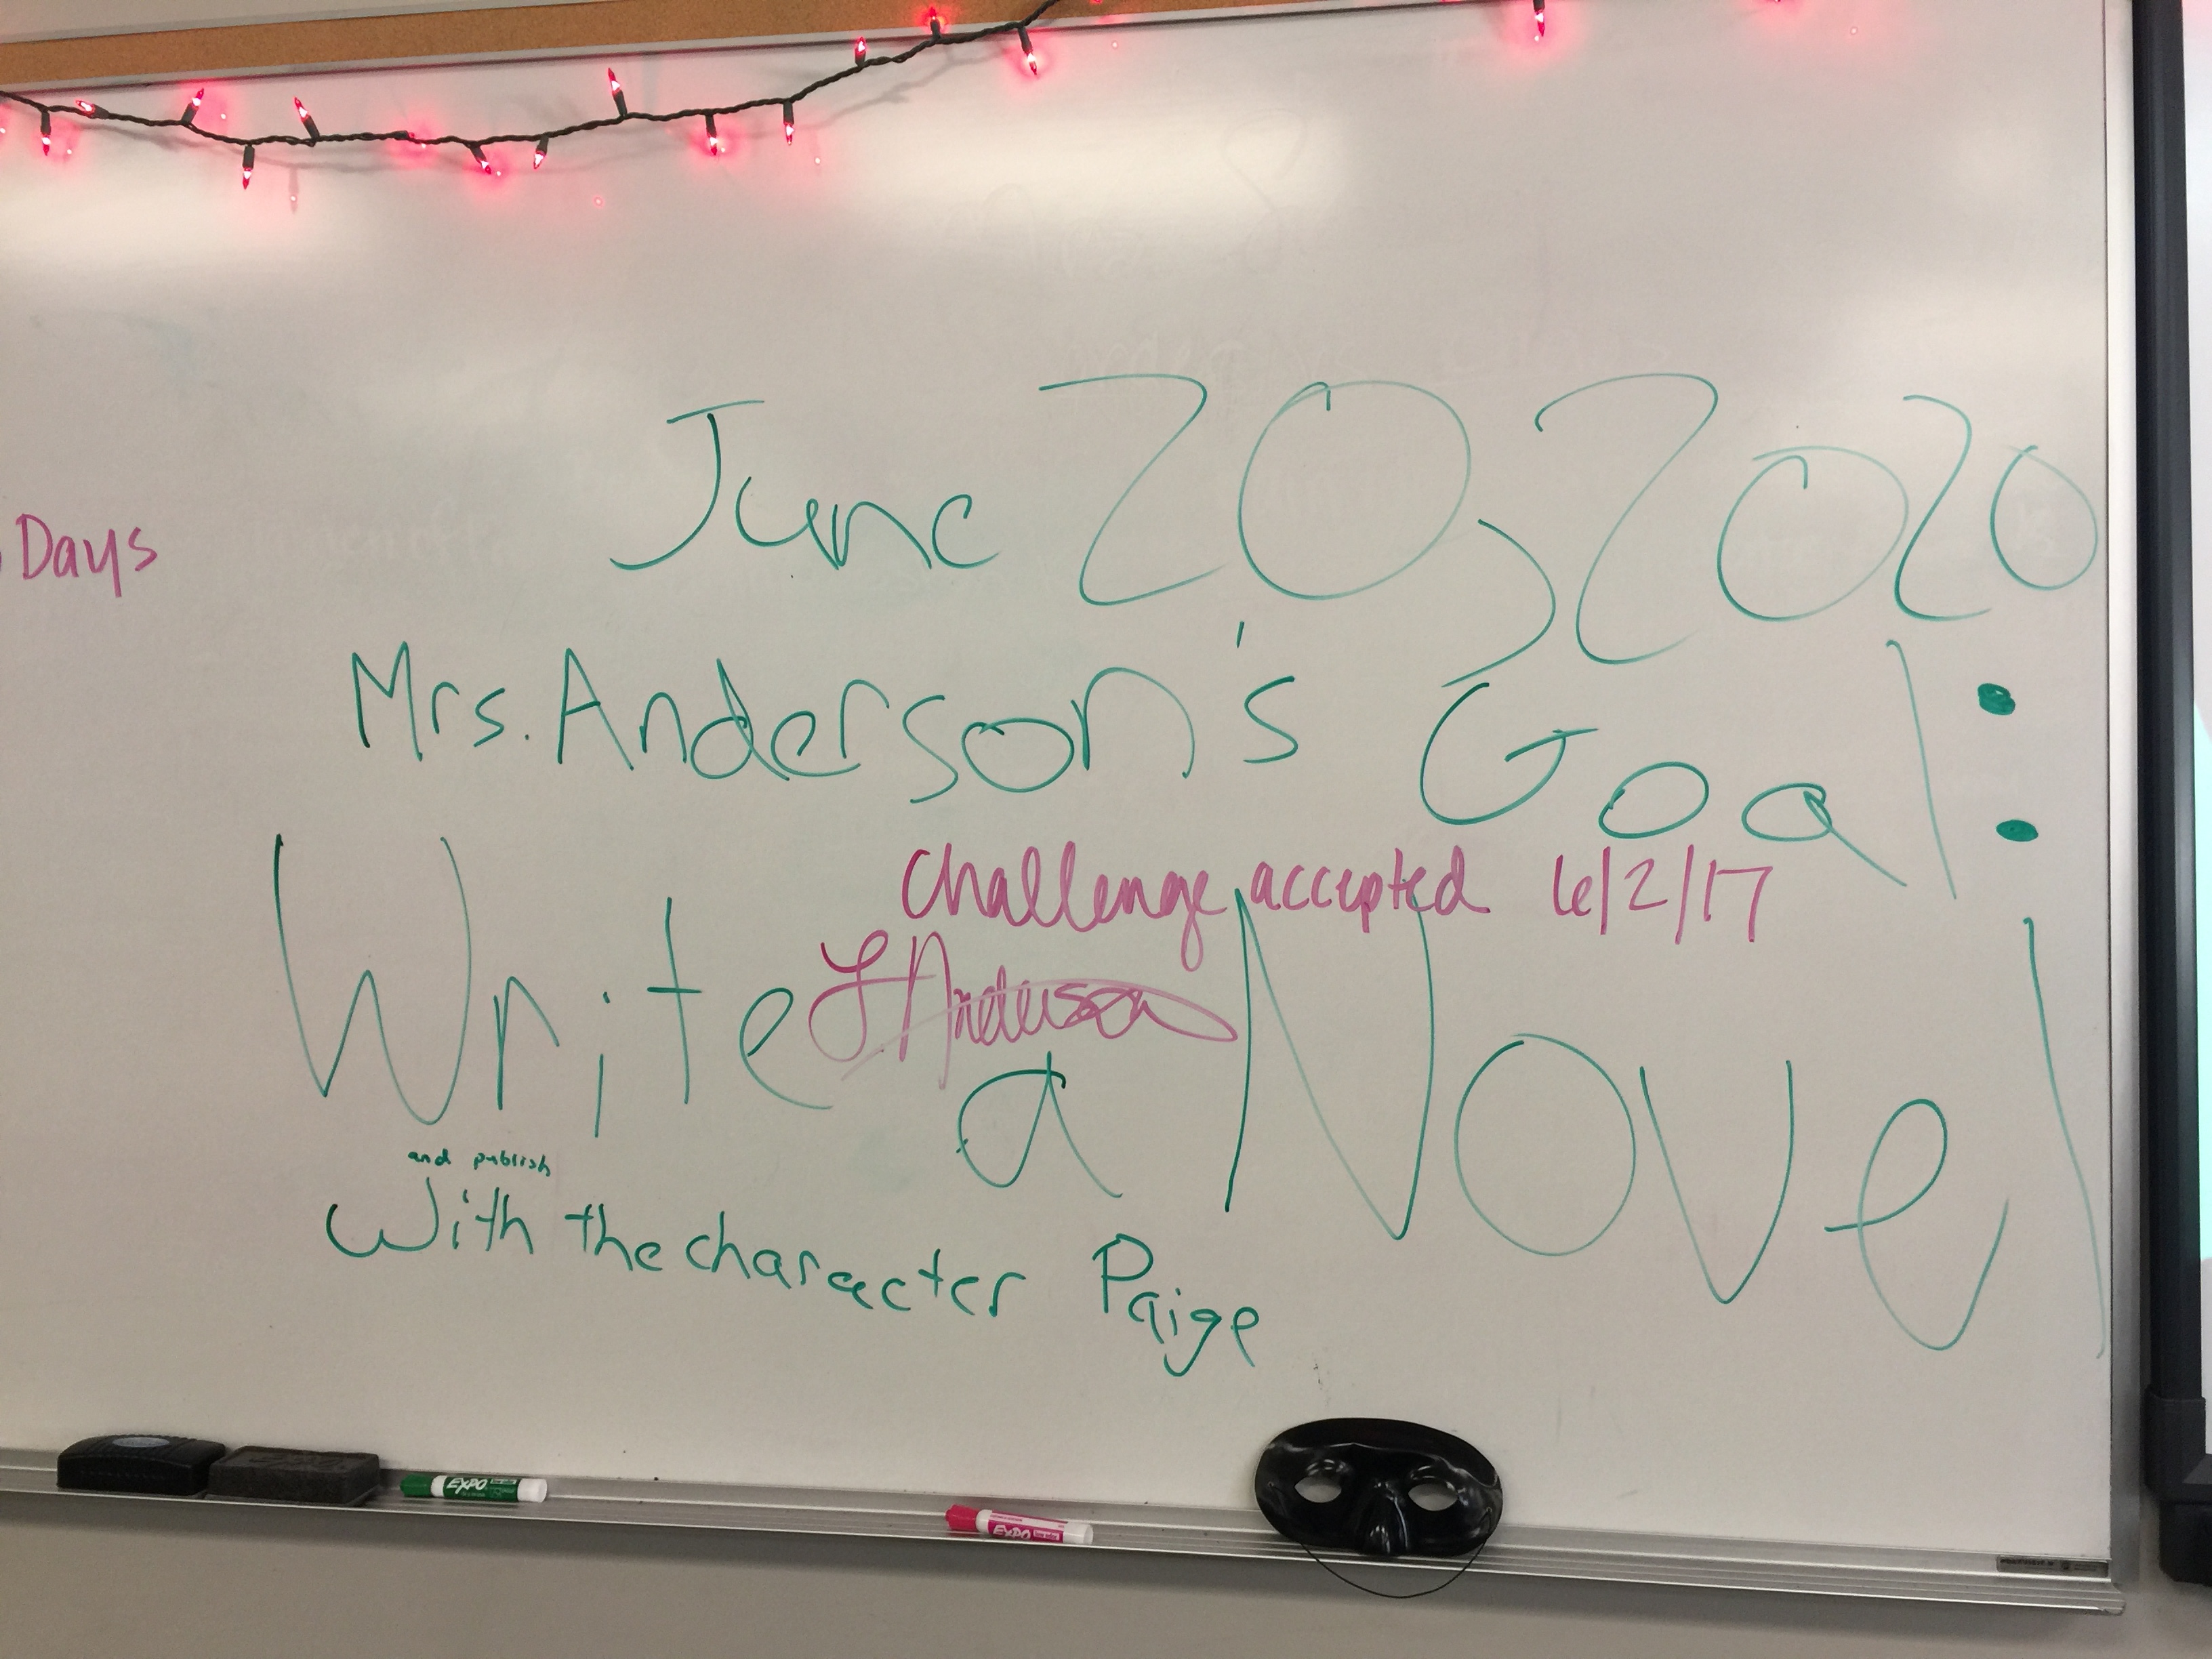 June 20, 2020
Days
Mrs. Anderson's Goal:
Challenge accepted 6/2/17
L Anderson
Write a Novel
and publish
With the character Paige
EXPO
EXPO